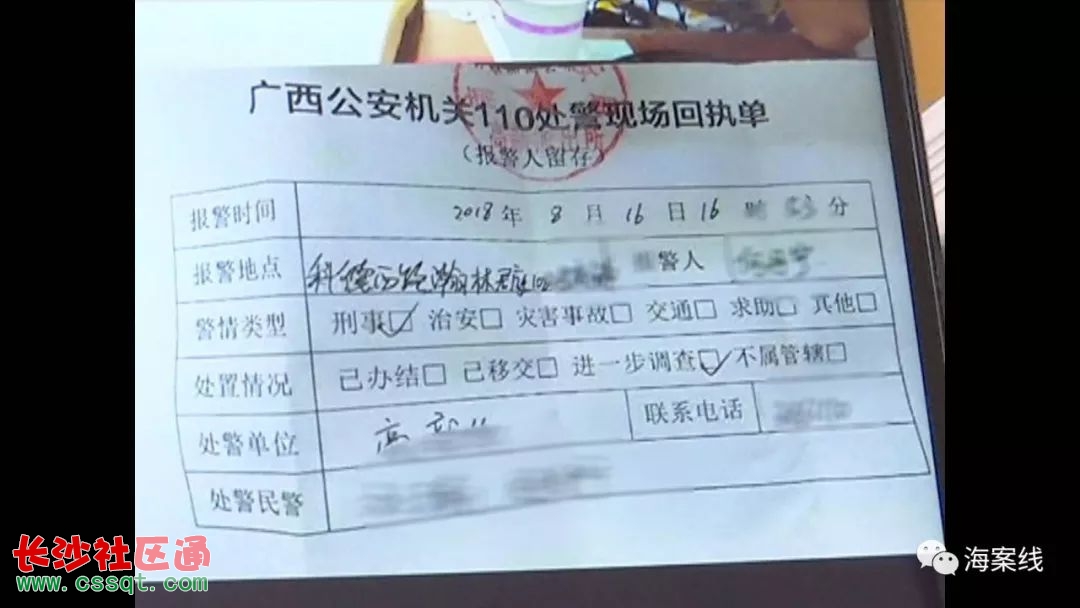 广西公安机关110处警现场回执单
（报警人留存）
报警时间 2018年 8 月 16 日 16 时 分
报警地点 科德西路瀚林君庭 警人
警情类型 刑事☑ 治安□ 灾害事故□ 交通□ 求助□ 其他□
处置情况 已办结□ 已移交□ 进一步调查☑ 不属管辖□
处警单位 高 联系电话
处警民警
长沙社区通
www.cssqt.com
海案线